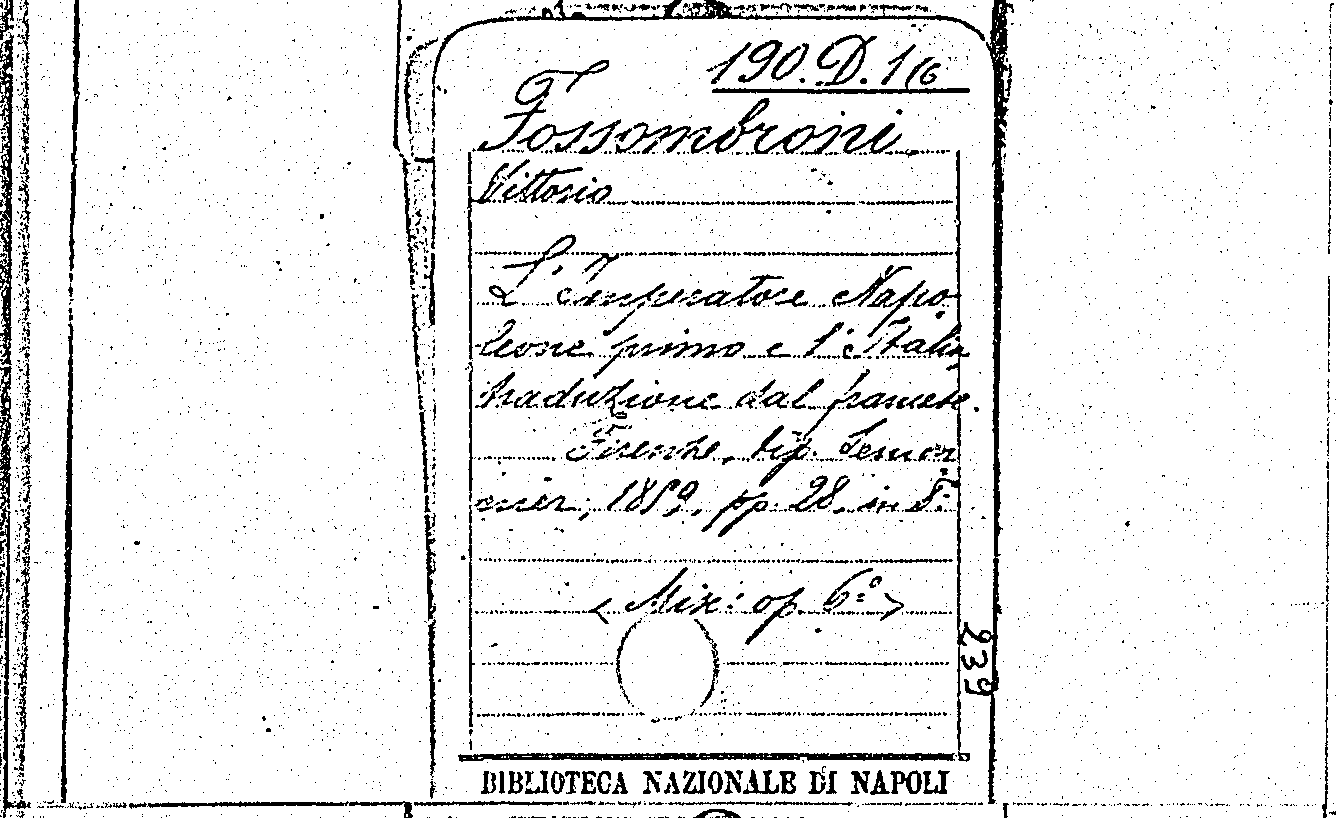 190.D.1(6
Fossombroni
Vittorio
L'Imperatore Napo-
leone primo e l'Italia,
traduzione dal francese.
Firenze, tip. Lemon-
nier, 1859, pp. 28. in 8°.
(Mix: op. 6°)
239
BIBLIOTECA NAZIONALE DI NAPOLI